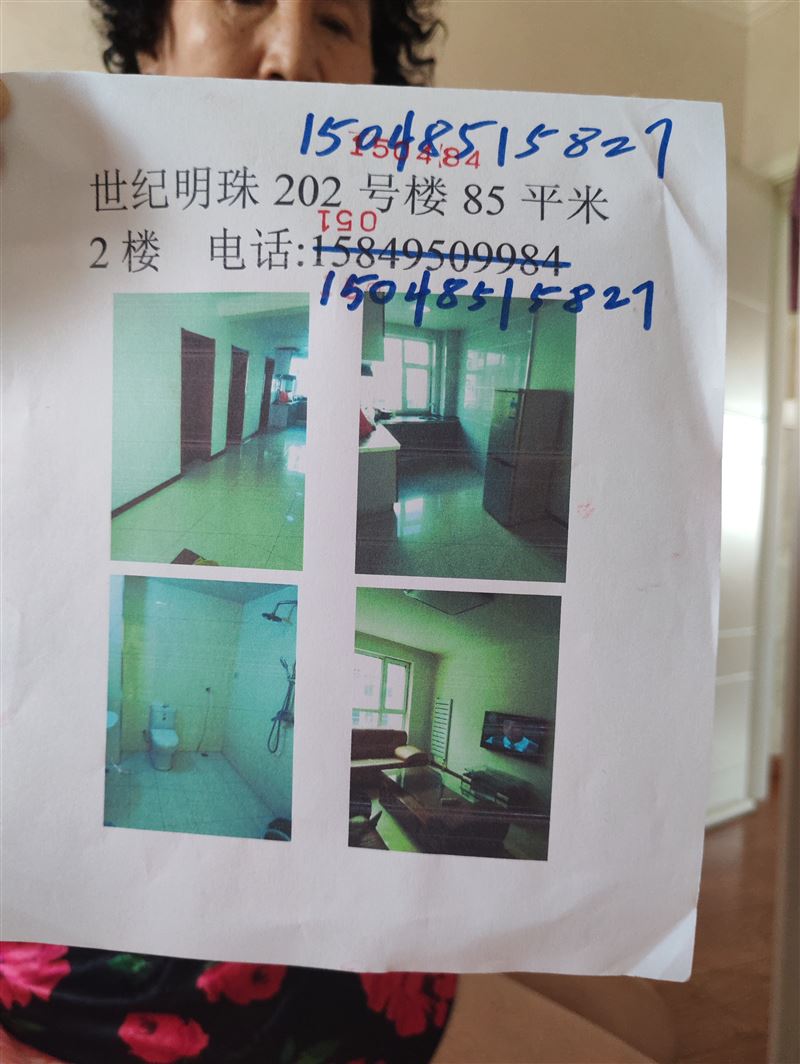 15048515827
150484
世纪明珠 202 号楼 85 平米
051
2 楼 电话:15849509984
15048515827